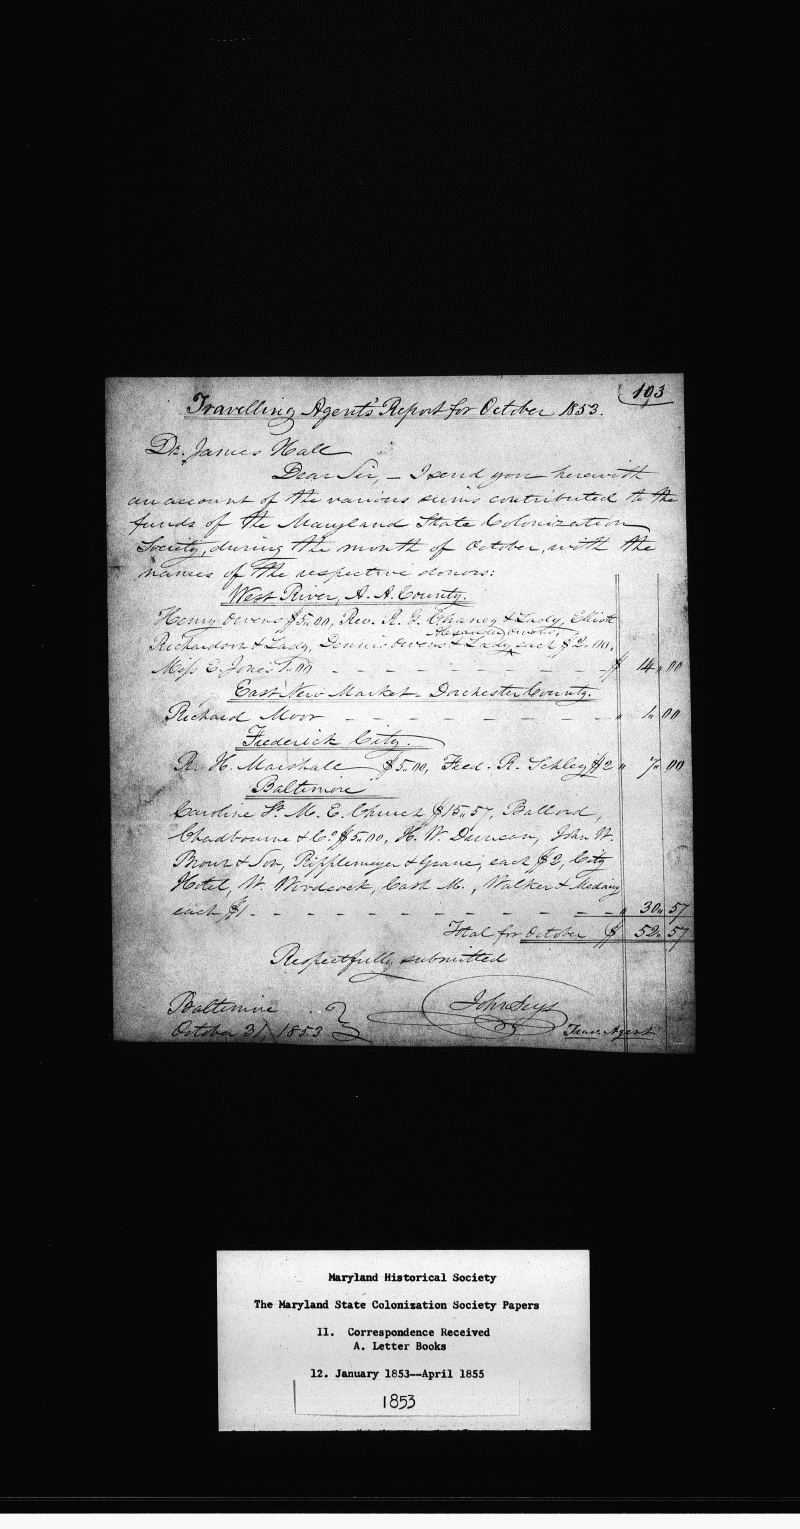 103
Travelling Agent's Report for October 1853.
Dr. James Hall
Dear Sir, – I send you herewith
an account of the various sums contributed to the
funds of the Maryland State Colonization
Society, during the month of October, with the
names of the respective donors:
West River, A. A. County.
Henry Owens $5.00, Rev. R. G. Chaney & Lady, Elliott
Alexander Owens,
Richardson & Lady, Dennis Owens & Lady each $2.00,
Miss E. Jones 1.00 – – – – – – – – – $ 14 " 00
East New Market – Dorchester County.
Richard Moor – – – – – – – – – " 1 " 00
Frederick City.
R. H. Marshall $5.00, Fred. R. Schley $2 " 7 " 00
Baltimore
Caroline St. M. E. Church $15.57, Ballord,
Chadbourne & Co. $5.00, H. W. Duncan, John W.
& Son, Ripplemeyer & each $2, City
Hotel, W. Woodcock, Cash M., Walker &
each $1 – – – – – – – – – – – " 30 " 57
Total for October $ 52 " 57
Respectfully submitted
Baltimore
October 31, 1853
John Seys
Trav. Agent
Maryland Historical Society
The Maryland State Colonization Society Papers
II. Correspondence Received
A. Letter Books
12. January 1853--April 1855
1853